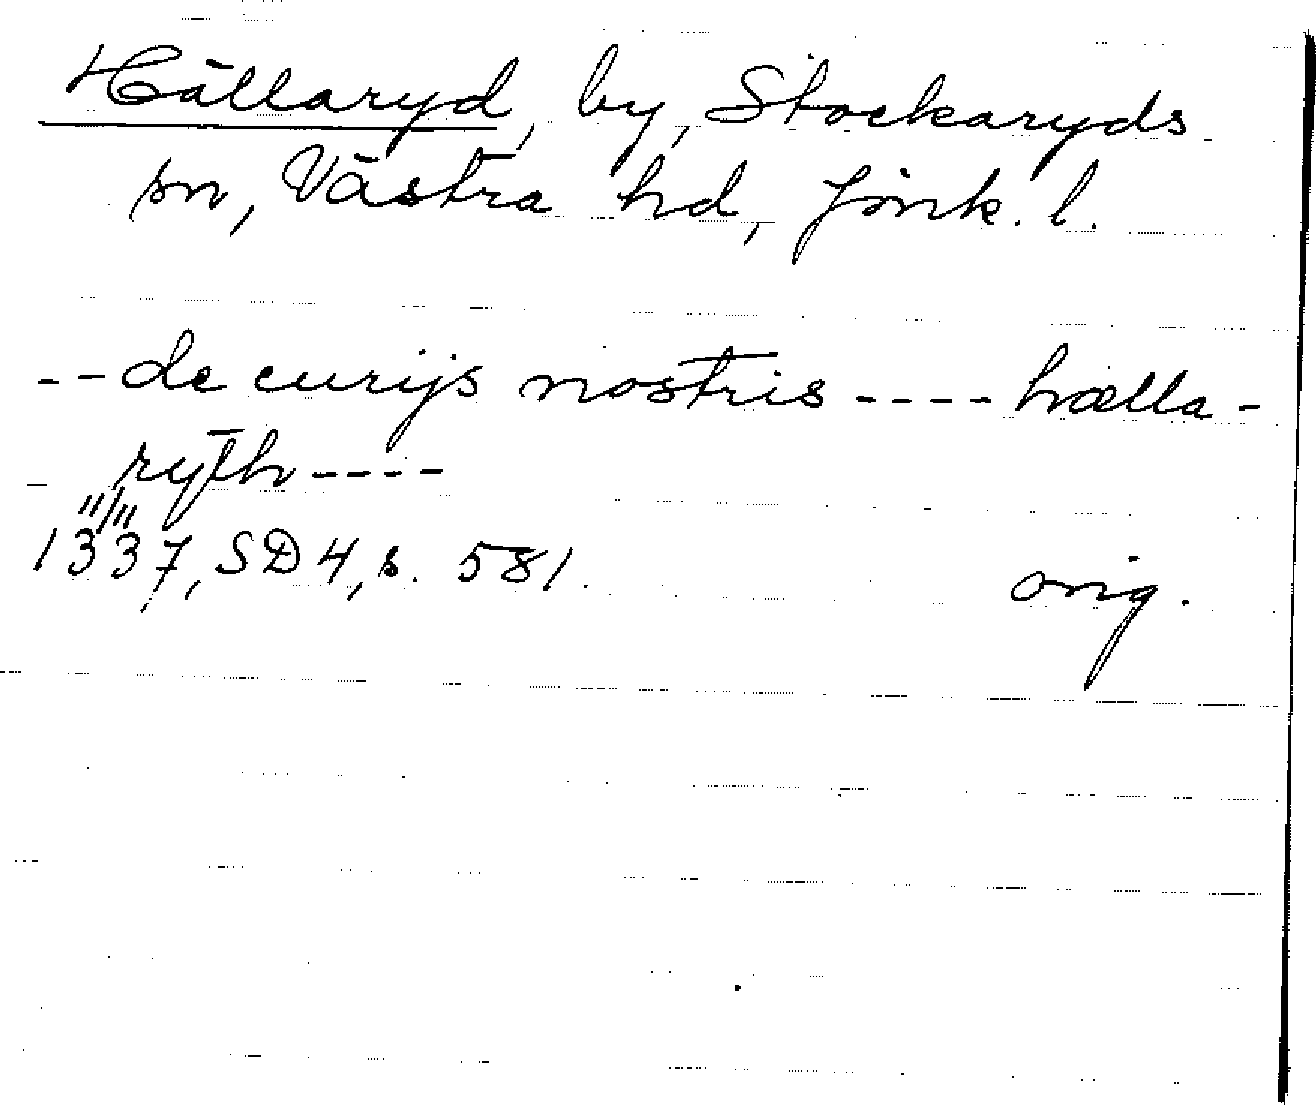 Hällaryd, by, Stockaryds
sn, Västra hd, Jönk. l.
-- de curijs nostris ---- hælla-
ryth ----
11/11
1337, SD 4, s. 581. orig.